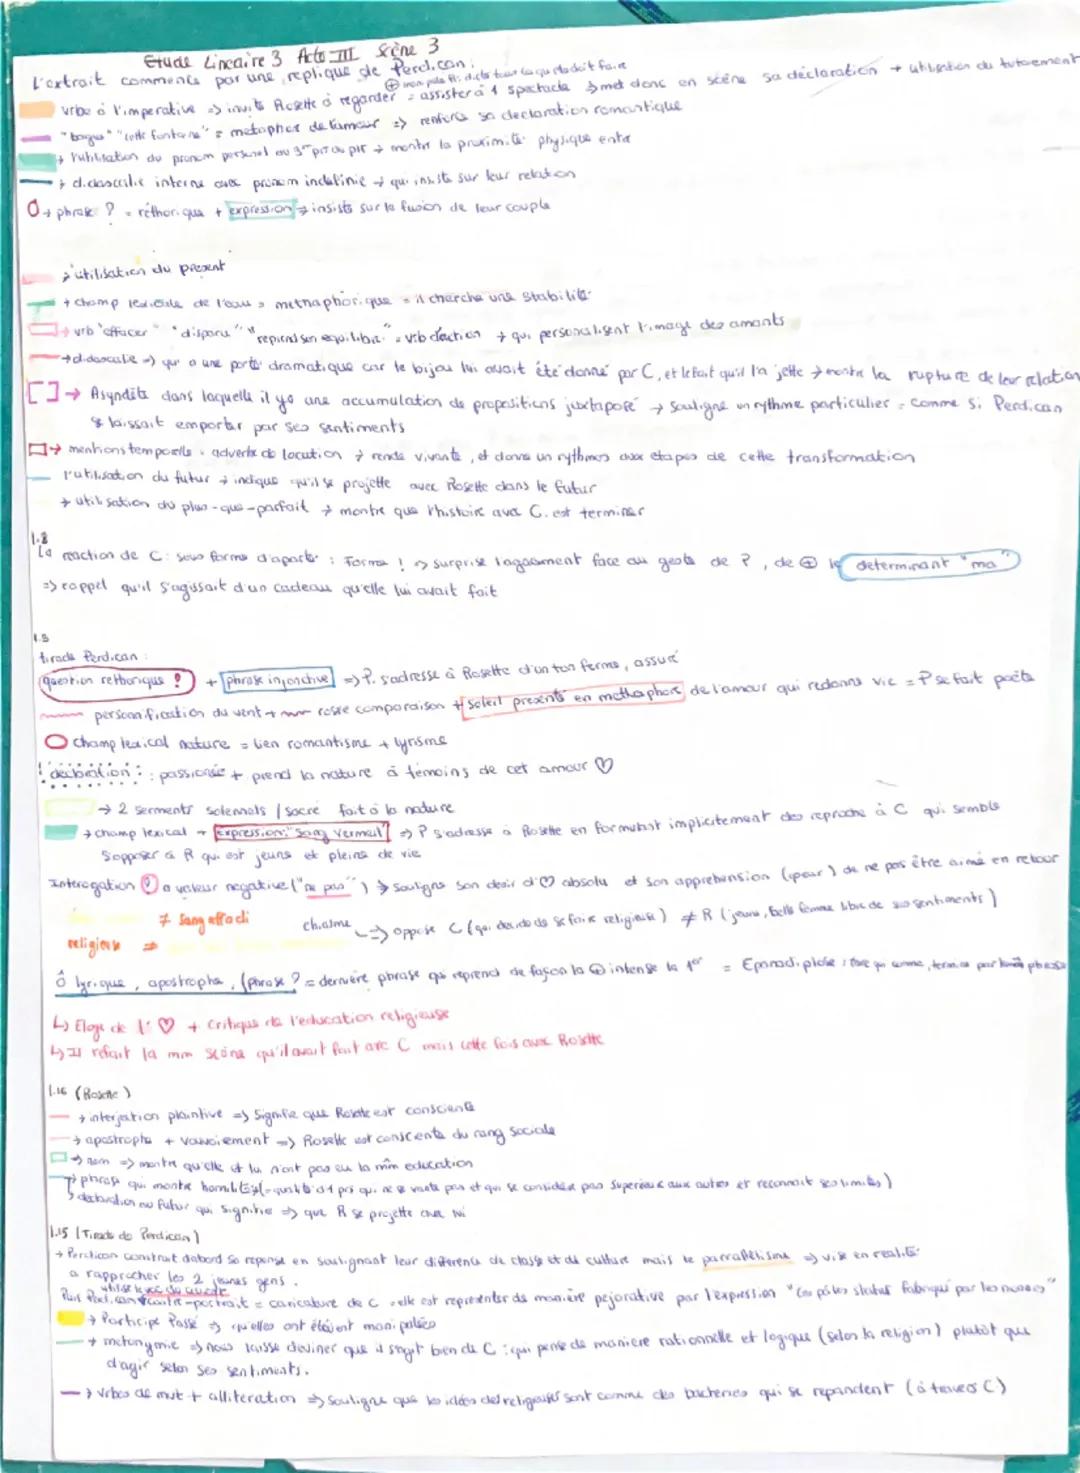 Etude Lineaire 3 Acte III Scène 3
L'extrait commence par une replique de Perdican :
vrbe à l'imperative => invite Rosette à regarder = assister à 1 spectacle → met donc en scène sa déclaration + utilisation du tutoiement
"bague" "cette fontaine" = metaphor de l'amour => renforce sa declaration romantique
→ l'utilisation du pronom personel au 3e pers du plr → montre la proximité physique entre
→ didascalie interne avec pronom indefinie → qui insiste sur leur relation
→ phrase ? = réthorique + expression → insiste sur la fusion de leur couple
→ utilisation du présent
→ champ lexicale de l'eau > methaphorique = il cherche une stabilité
→ vrb "effacer" "disparu" "reprend son equilibre" = vrb d'action → qui personalisent l'image des amants
→ didascalie => qui a une porté dramatique car le bijou lui avait été donné par C, et le fait qu'il l'a jette → montre la rupture de leur relation
[ ] → Asyndète dans laquelle il y a une accumulation de propositions juxtaposé → souligne un rythme particulier = comme si Perdican
se laissait emporter par ses sentiments
→ mentions temporelle : adverbe de locution → rende vivante, et donne un rythmes aux etapes de cette transformation
l'utilisation du futur → indique qu'il se projette avec Rosette dans le futur
→ utilisation du plus-que-parfait → montre que l'histoire avec C. est terminer
l.8
La reaction de C : sous forme d'aparté : Forme ! => surprise l'agacement face au geste de P, de ⊕ le determinant "ma"
=> rappel qu'il s'agissait d'un cadeau qu'elle lui avait fait
tirade Perdican :
question rethorique ? + phrase injonctive => P. s'adresse à Rosette d'un ton ferme, assuré
personnification du vent + comparaison + soleil presenté en methaphore de l'amour qui redonne vie = P se fait poète
champ lexical nature = lien romantisme + lyrisme
declaration : passionnée + prend la nature à témoins de cet amour ♡
→ 2 serments solennels / sacré fait à la nature
→ champ lexical + expression: "sang vermeil" => P s'adresse à Rosette en formulant implicitement des reproche à C qui semble
s'opposer à R qui est jeune et pleine de vie
Interogation ? a valeur negative ("ne pas") → souligne son desir d'♡ absolu et son apprehension (peur) de ne pas être aimé en retour
≠ sang affadi
religieuse =>
chiasme => oppose C (qui decide de se faire religieuse) ≠ R (jeune, belle femme libre de ses sentiments)
ô lyrique, apostrophe, (phrase ? = dernière phrase qui reprend de façon la ⊕ intense la 1ère = Epanadiplose :
↳ Eloge de l'♡ + critique de l'education religieuse
↳ Il refait la mm scène qu'il avait fait avec C mais cette fois avec Rosette
l.16 (Rosette)
→ interjection plaintive => Signifie que Rosette est consciente
→ apostrophe + vouvoiement => Rosette est consciente du rang sociale
→ nom => montre qu'elle et lui n'ont pas eu la mm education
→ phrase qui montre humilité (= qualité d'1 prs qui ne se vante pas et qui se considère pas superieur aux autres et reconnait ses limites)
→ declaration au futur qui signifie => que R se projette avec lui
l.15 (Tirade de Perdican)
→ Perdican construit dabord sa reponse en soulignant leur différence de classe et de culture mais le parrallélisme => vise en realité
a rapprocher les 2 jeunes gens.
Puis Perdican contre-portrait = caricature de C : elle est representer de manière pejorative par l'expression "ces pâles statues fabriqué par les nonnes"
→ Participe Passé => qu'elles ont été manipulées
→ metonymie => nous laisse deviner que il s'agit bien de C : qui pense de maniere rationnelle et logique (selon la religion) plutôt que
d'agir selon ses sentiments.
→ vrbes de mvt + alliteration => souligne que les idées des religieuses sont comme des bacteries qui se repandent (à travers C)